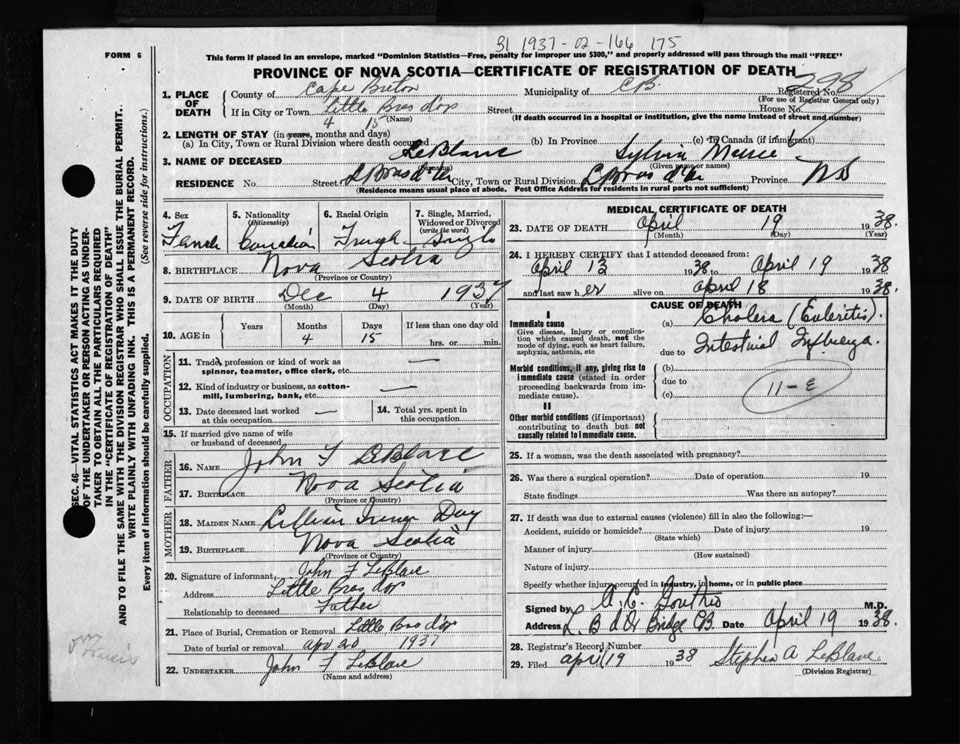 31 1937-02-166 175
FORM 6
This form if placed in an envelope, marked "Dominion Statistics—Free, penalty for improper use $300," and properly addressed will pass through the mail "FREE"
PROVINCE OF NOVA SCOTIA—CERTIFICATE OF REGISTRATION OF DEATH
1. PLACE OF DEATH
County of Cape Breton Municipality of C.B. Registered No. 298
(For use of Registrar General only)
If in City or Town Little Bras d'or Street House No.
(Name) (If death occurred in a hospital or institution, give the name instead of street and number)
2. LENGTH OF STAY (in years, months and days) 4 15
(a) In City, Town or Rural Division where death occurred (b) In Province (c) In Canada (if immigrant)
3. NAME OF DECEASED LeBlanc Sylvia
(Given name or names)
RESIDENCE No. Street L Bras d'or City, Town or Rural Division L Bras d'or Province NS
(Residence means usual place of abode. Post Office Address for residents in rural parts not sufficient)
4. Sex
5. Nationality (Citizenship)
6. Racial Origin
7. Single, Married, Widowed or Divorced (write the word)
Female Canadian French Single
8. BIRTHPLACE Nova Scotia
(Province or Country)
9. DATE OF BIRTH Dec 4 1937
(Month) (Day) (Year)
10. AGE in Years Months Days If less than one day old
4 15 hrs. or min.
OCCUPATION
11. Trade, profession or kind of work as spinner, teamster, office clerk, etc. —
12. Kind of industry or business, as cotton-mill, lumbering, bank, etc. —
13. Date deceased last worked at this occupation —
14. Total yrs. spent in this occupation
15. If married give name of wife or husband of deceased
FATHER
16. NAME John F LeBlanc
17. BIRTHPLACE Nova Scotia
(Province or Country)
MOTHER
18. MAIDEN NAME Lillian Day
19. BIRTHPLACE Nova Scotia
(Province or Country)
20. Signature of informant John F LeBlanc
Address Little Bras d'or
Relationship to deceased Father
21. Place of Burial, Cremation or Removal Little Bras d'or
Date of burial or removal apr 20 1937
22. UNDERTAKER John F LeBlanc
(Name and address)
MEDICAL CERTIFICATE OF DEATH
23. DATE OF DEATH April 19 1938.
(Month) (Day) (Year)
24. I HEREBY CERTIFY that I attended deceased from:
April 13 1938 to April 19 1938
and last saw her alive on April 18 1938.
CAUSE OF DEATH
I
Immediate cause
Give disease, injury or complication which caused death, not the mode of dying, such as heart failure, asphyxia, asthenia, etc
(a) Cholera (Enteritis).
due to Intestinal Influenza.
Morbid conditions, if any, giving rise to immediate cause (stated in order proceeding backwards from immediate cause).
(b)
due to
(c)
11-E
II
Other morbid conditions (if important) contributing to death but not causally related to immediate cause.
25. If a woman, was the death associated with pregnancy?
26. Was there a surgical operation? Date of operation 19
State findings Was there an autopsy?
27. If death was due to external causes (violence) fill in also the following:—
Accident, suicide or homicide? Date of injury 19
(State which)
Manner of injury
(How sustained)
Nature of injury
Specify whether injury occurred in industry, in home, or in public place
Signed by A. C. M.D.
Address L. B d'Or Bridge CB. Date April 19 1938.
28. Registrar's Record Number
29. Filed April 19 1938 Stephen A LeBlanc
(Division Registrar)
SEC. 46—VITAL STATISTICS ACT MAKES IT THE DUTY
OF THE UNDERTAKER OR PERSON ACTING AS UNDER-
TAKER TO OBTAIN ALL THE PARTICULARS REQUIRED
IN THE "CERTIFICATE OF REGISTRATION OF DEATH"
AND TO FILE THE SAME WITH THE DIVISION REGISTRAR WHO SHALL ISSUE THE BURIAL PERMIT.
WRITE PLAINLY WITH UNFADING INK. THIS IS A PERMANENT RECORD.
Every item of information should be carefully supplied. (See reverse side for instructions.)